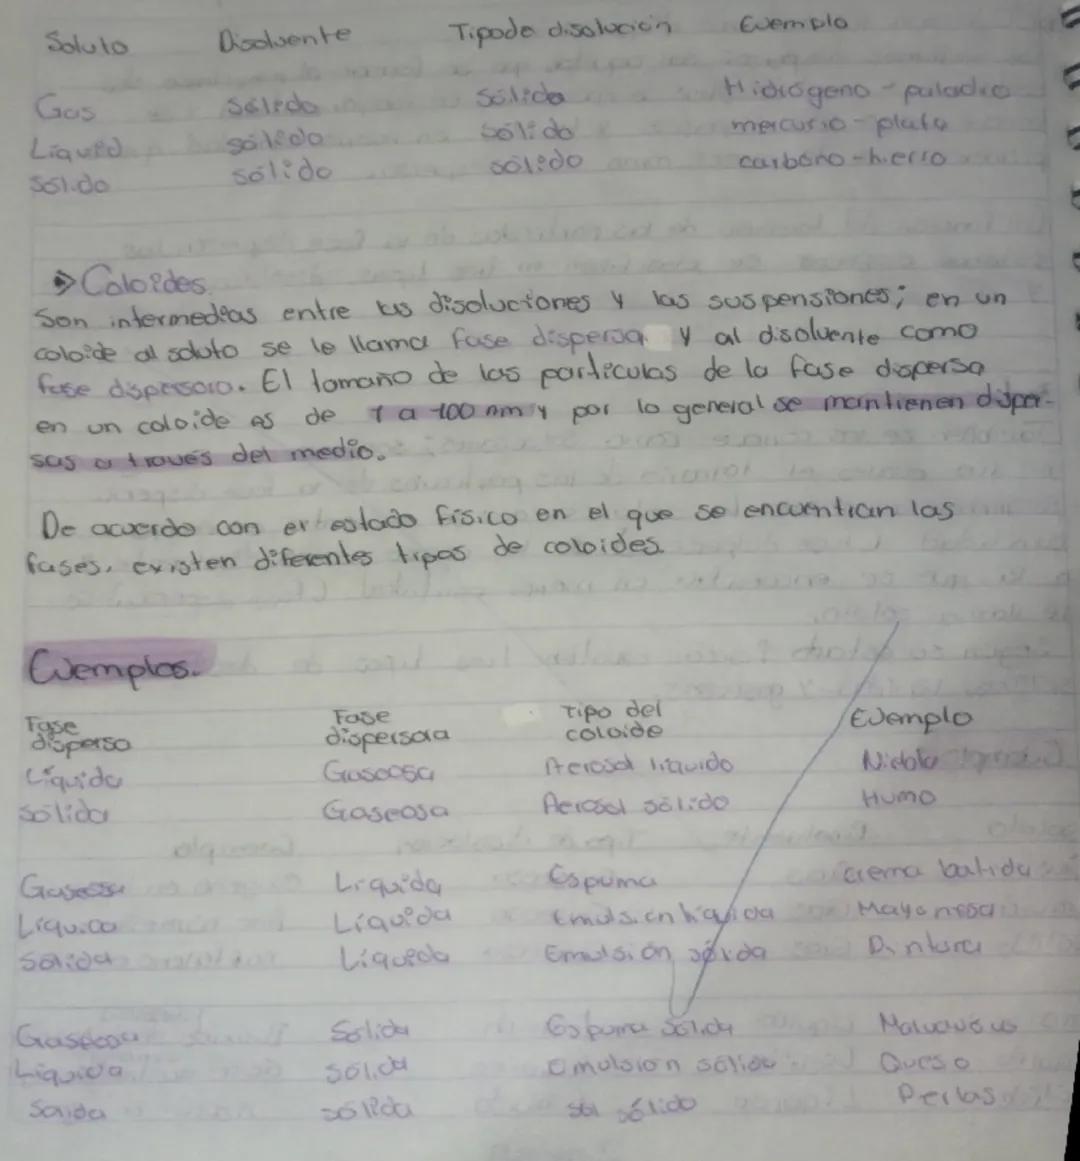 Soluto Disolvente Tipo de disolución Ejemplo
Gas sólido sólido Hidrógeno - paladio
Liquido sólido sólido mercurio - plata
Sólido sólido sólido carbono - hierro
Coloides.
Son intermedias entre las disoluciones y las suspensiones; en un
coloide al soluto se le llama fase dispersa y al disolvente como
fase dispersora. El tamaño de las partículas de la fase dispersa
en un coloide es de 1 a 100 nm y por lo general se mantienen disper-
sas a través del medio.
De acuerdo con el estado físico en el que se encuentran las
fases, existen diferentes tipos de coloides.
Ejemplos.
Fase Fase Tipo del Ejemplo
disperso dispersora coloide
Líquida Gaseosa Aerosol líquido Niebla
Sólida Gaseosa Aerosol sólido Humo
Gaseosa Líquida Espuma crema batida
Líquida Líquida Emulsión líquida Mayonesa
Sólida Líquida Emulsión sólida Pintura
Gaseosa Solida Espuma sólida Malvaviscos
Líquida sólida emulsion sólida Queso
Sólida sólida sol sólido Perlas